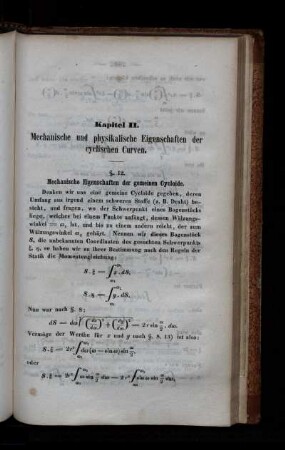 Kapitel II.
Mechanische und physikalische Eigenschaften der
cyclischen Curven.
§. 12.
Mechanische Eigenschaften der gemeinen Cycloide.
Denken wir uns eine gemeine Cycloide gegeben, deren
Umfang aus irgend einem schweren Stoffe (z. B. Draht) be-
steht, und fragen, wo der Schwerpunkt eines Bogenstücks
liege, welches bei einem Punkte anfängt, dessen Wälzungs-
winkel = ω₁ ist, und bis zu einem andern reicht, der zum
Wälzungswinkel ω₂ gehört. Nennen wir dieses Bogenstück
S, die unbekannten Coordinaten des gesuchten Schwerpunkts
ξ, η, so haben wir zu ihrer Bestimmung nach den Regeln der
Statik die Momentengleichung:
S.ξ = ∫x.dS,
S.η = ∫y.dS.
Nun war nach §. 8:
dS = dω √((dx/dω)² + (dy/dω)²) = 2r sin ω/2 . dω.
Vermöge der Werthe für x und y nach §. 8, 13) ist also:
S.ξ = 2r² ∫dω(ω − sin ω) sin ω/2
oder
S.ξ = 2r² ∫ω sin ω/2 dω − 2r² ∫sin ω sin ω/2 dω,